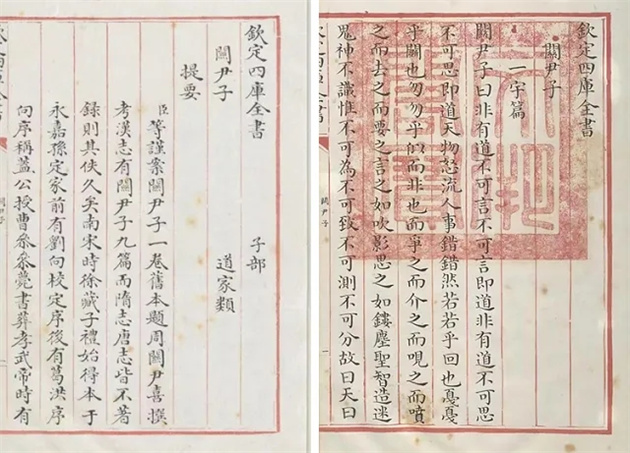 欽定四庫全書 子部
關尹子 道家類
提要
臣等謹案關尹子一卷舊本題周關尹喜撰
考漢志有關尹子九篇而隋志唐志皆不著
録則其佚久矣南宋時徐藏子禮始得本于
永嘉孫定家前有劉向校定序後有葛洪序
向序稱蓋公授曹參參薨書葬孝武帝時有
關尹子
欽定四庫全書
關尹子
一宇篇
關尹子曰非有道不可言不可言即道非有道不可思
不可思即道天物怒流人事錯錯然若若乎回也戞戞
乎鬭也勿勿乎似而非也而爭之而介之而哯之而嘳
之而去之而要之言之如吹影思之如鏤塵聖智造迷
鬼神不識惟不可為不可致不可測不可分故曰天曰
關尹子